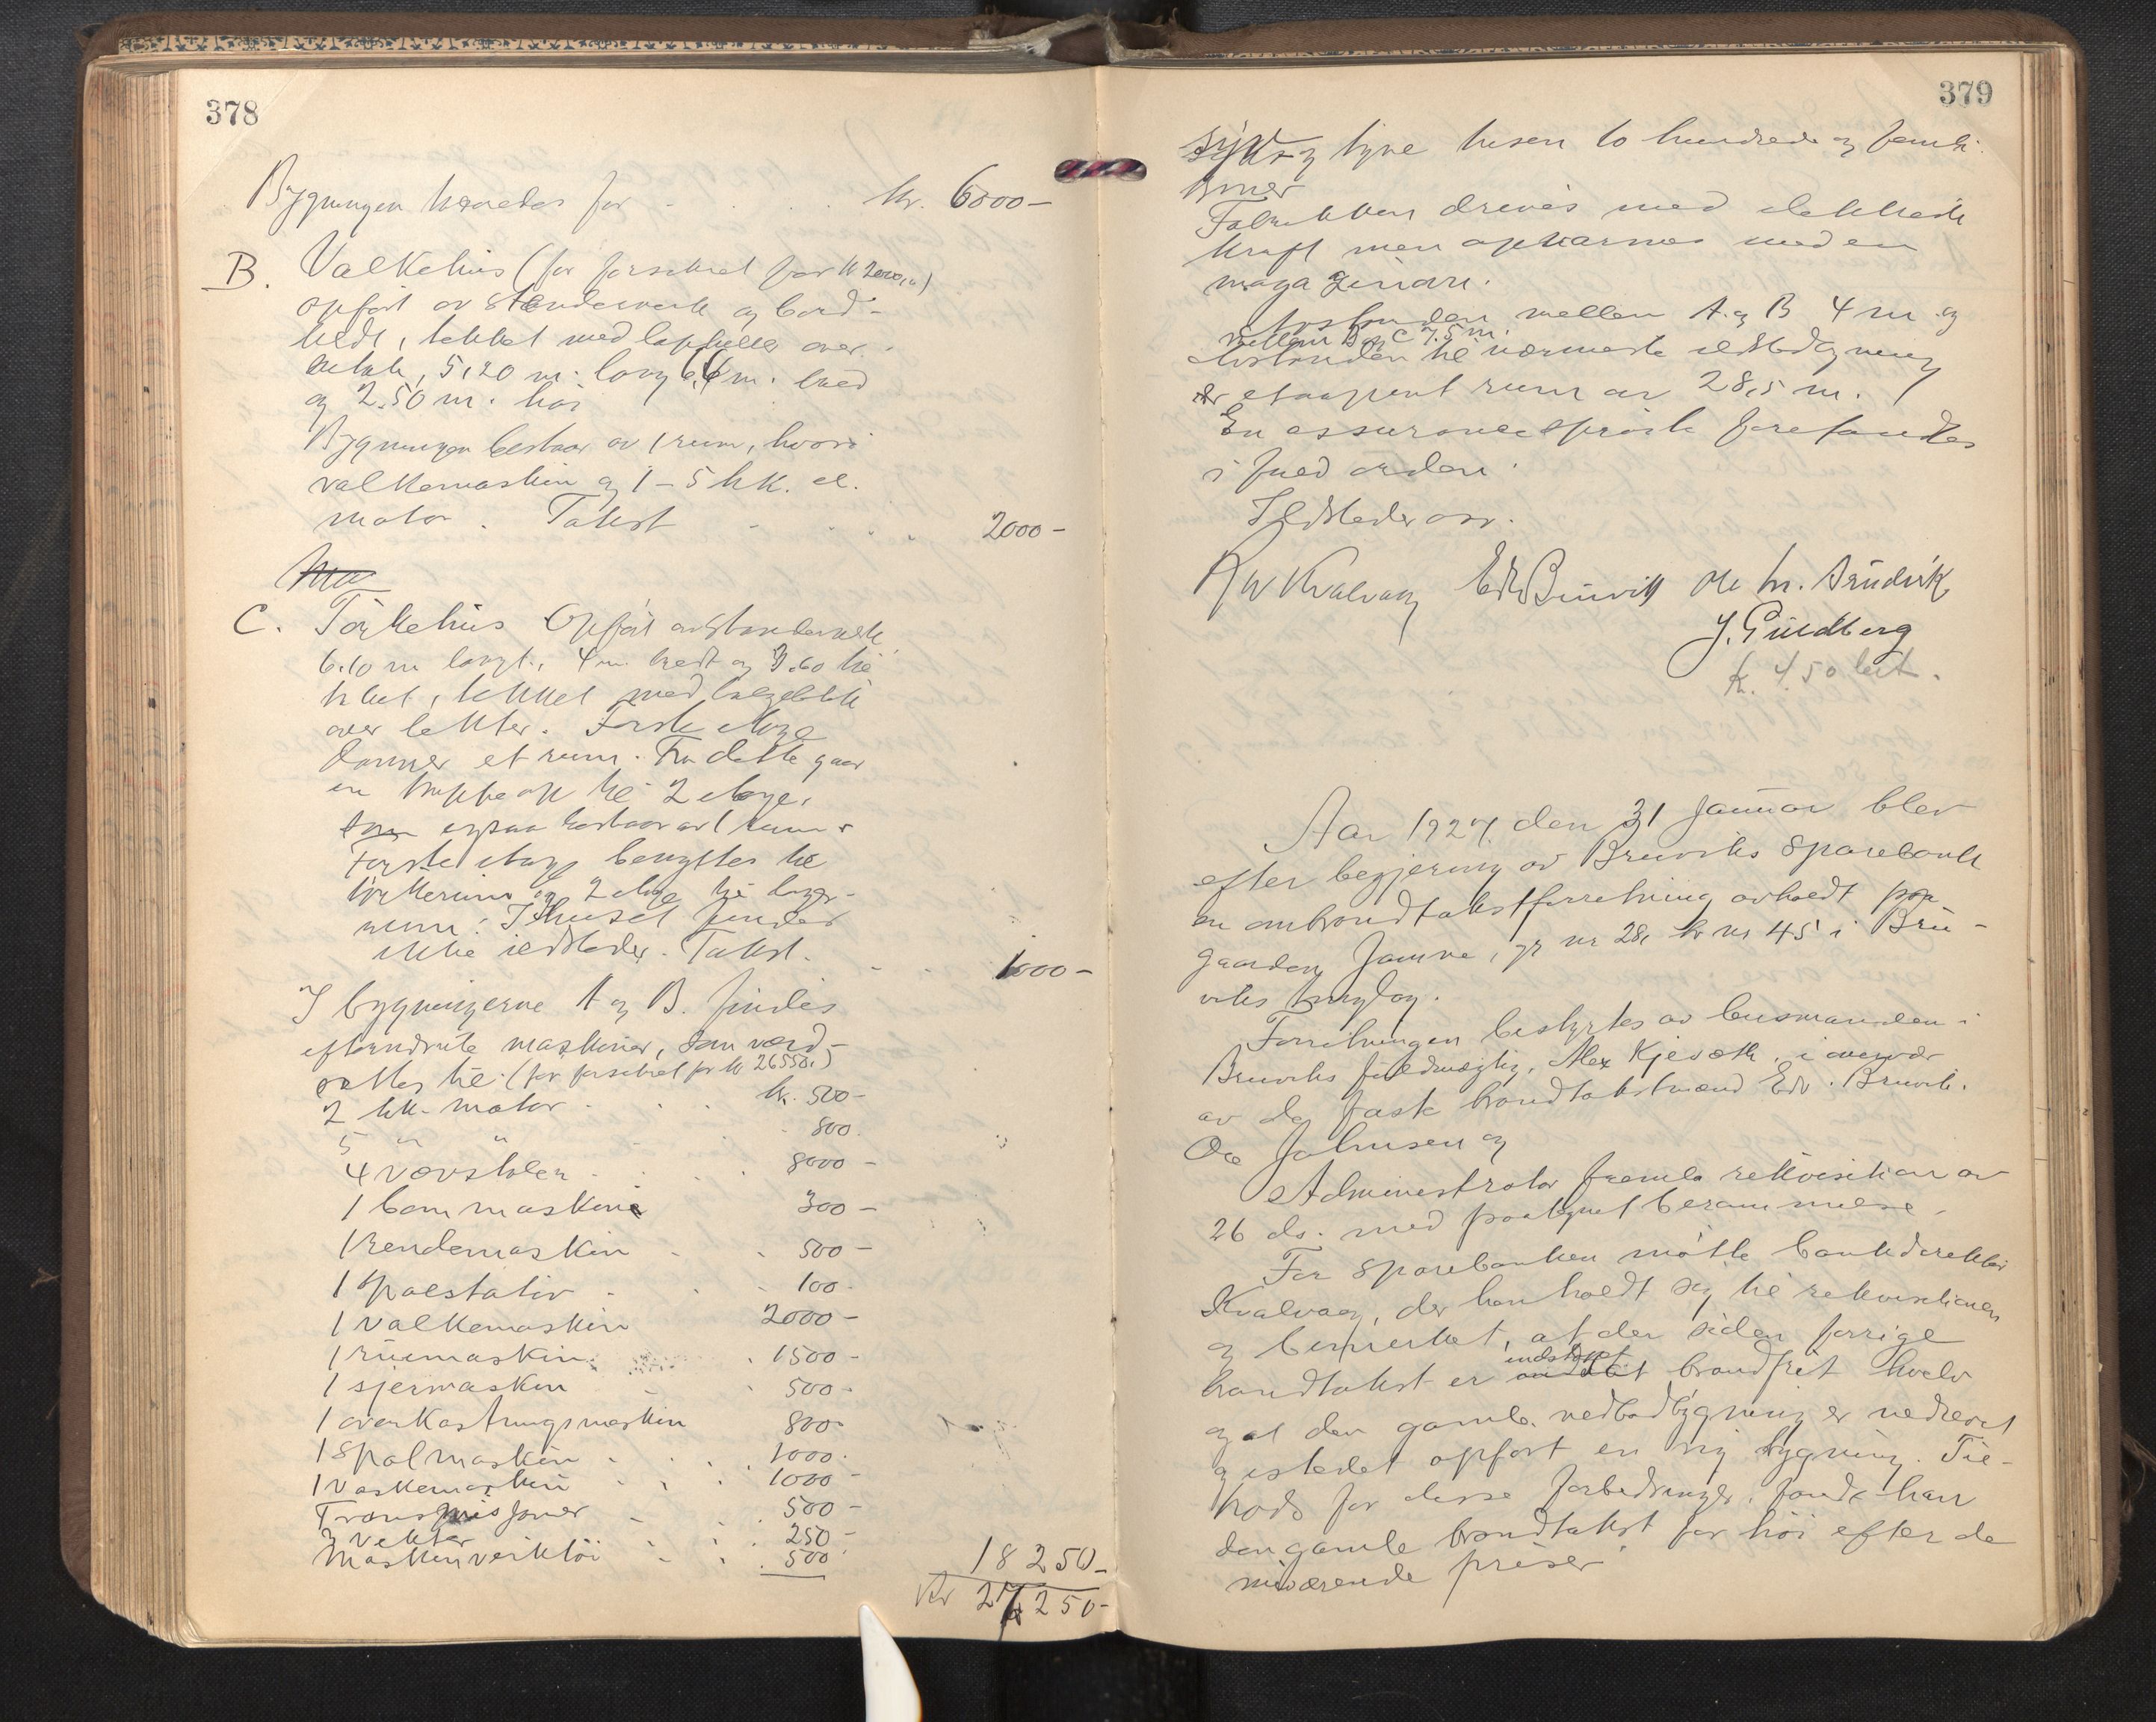 378
Bygningen værdsættes for kr. 6000 -
B. Valkehus (før forsikret for kr 2000,00)
opført av stenderverk og bord-
klædt, tekket med tappheller over
lekter, 5,20 m. lang 6,6 m. bred
og 2.50 m. høi
Bygningen bestaar av 1 rum, hvori
valkemaskin og 1 - 5 hk. el.
motor. Takst 2000 -
C. Tørkehus Opført av stenderverk
6.10 m langt, 4 m. bredt og 3.60 høi
tekket med bølgeblik
over lekter. Første etage
danner et rum. Fra dette gaar
en trappe op til 2 etage,
som ogsaa bestaar av 1 rum.
Første etage benyttes til
tørkerum og 2 etage til lager-
rum. I huset findes
ikke ildsteder. Takst. 1000 -
I bygningerne A og B. findes
efternævnte maskiner, som værd-
sættes til: (før forsikret for kr 26550,)
2 hk. motor kr. 500 -
5 " " 800
4 vævstoler 8000 -
1 bommaskine 300 -
1 rendemaskin 500 -
1 spolestativ 100 -
1 valkemaskin 2000 -
1 ruemaskin 1500 -
1 sjermaskin 500 -
1 overkastningsmaskin 800 -
1 spolmaskin 1000 -
1 vaskemaskin 1000 -
Transmisjoner 500 -
3 vekter 250 -
Maskinverktøi 500 18 250 -
Kr 27 250 -
379
syv og tyve tusen to hundrede og femti
kroner
Fabrikken drives med elektrisk
kraft men opvarmes med en
magasinovn.
Avstanden mellem A og B 4 m og
mellem B og C 7.5 m.
Avstanden til nærmeste ildstedbygning
er et aapent rum av 28,5 m.
En assurancesprøite forefandtes
i fuld orden.
Ildsteder
Kvalvaag Edv Bruvik Ole
J. Guldberg
K. 4.50 bet.
Aar 1927 den 31 januar blev
efter begjering av Bruviks Sparebank
en ombrandtakstforretning avholdt paa
gaarden Jamne, gr nr 28, br nr 45 i Bru-
viks tinglag.
Forretningen bestyrtes av lensmanden i
Bruviks fuldmægtig, Alex Kjevoth, i overvær
av de faste brandtakstmænd Edv. Bruvik.
Ole Johnsen og
Administrator fremla rekvisition av
26 ds. med paategnet berammelse.
For sparebanken møtte bankdirektør
Kvalvaag, der henholdt sig til rekvisitionen
og bemerket, at der siden forrige
brandtakst er indsat brandfrit hvelv
og at den gamle vedbodbygning er nedrevet
og istedet opført en ny bygning. Til-
trods for disse forbedringer, fandt han
den gamle brandtakst for høi efter de
nuværende priser